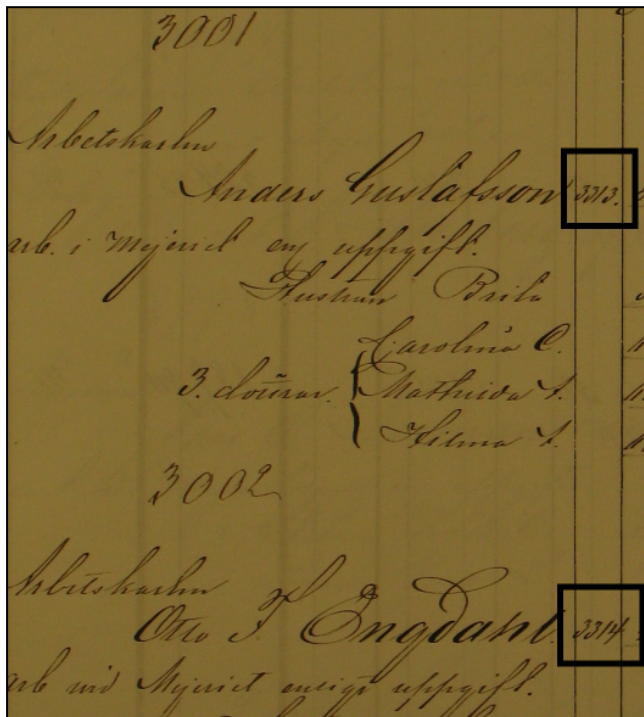 3001
Arbetskarlen
Anders Gustafsson 3313.
arb. i Mejeriet enl uppgift.
Hustrun Brita
Carolina C.
3. döttrar. Mathilda A.
Hilma A.
3002
Arbetskarlen
Otto F. Engdahl. 3314
arb vid Mejeriet enligt uppgift.